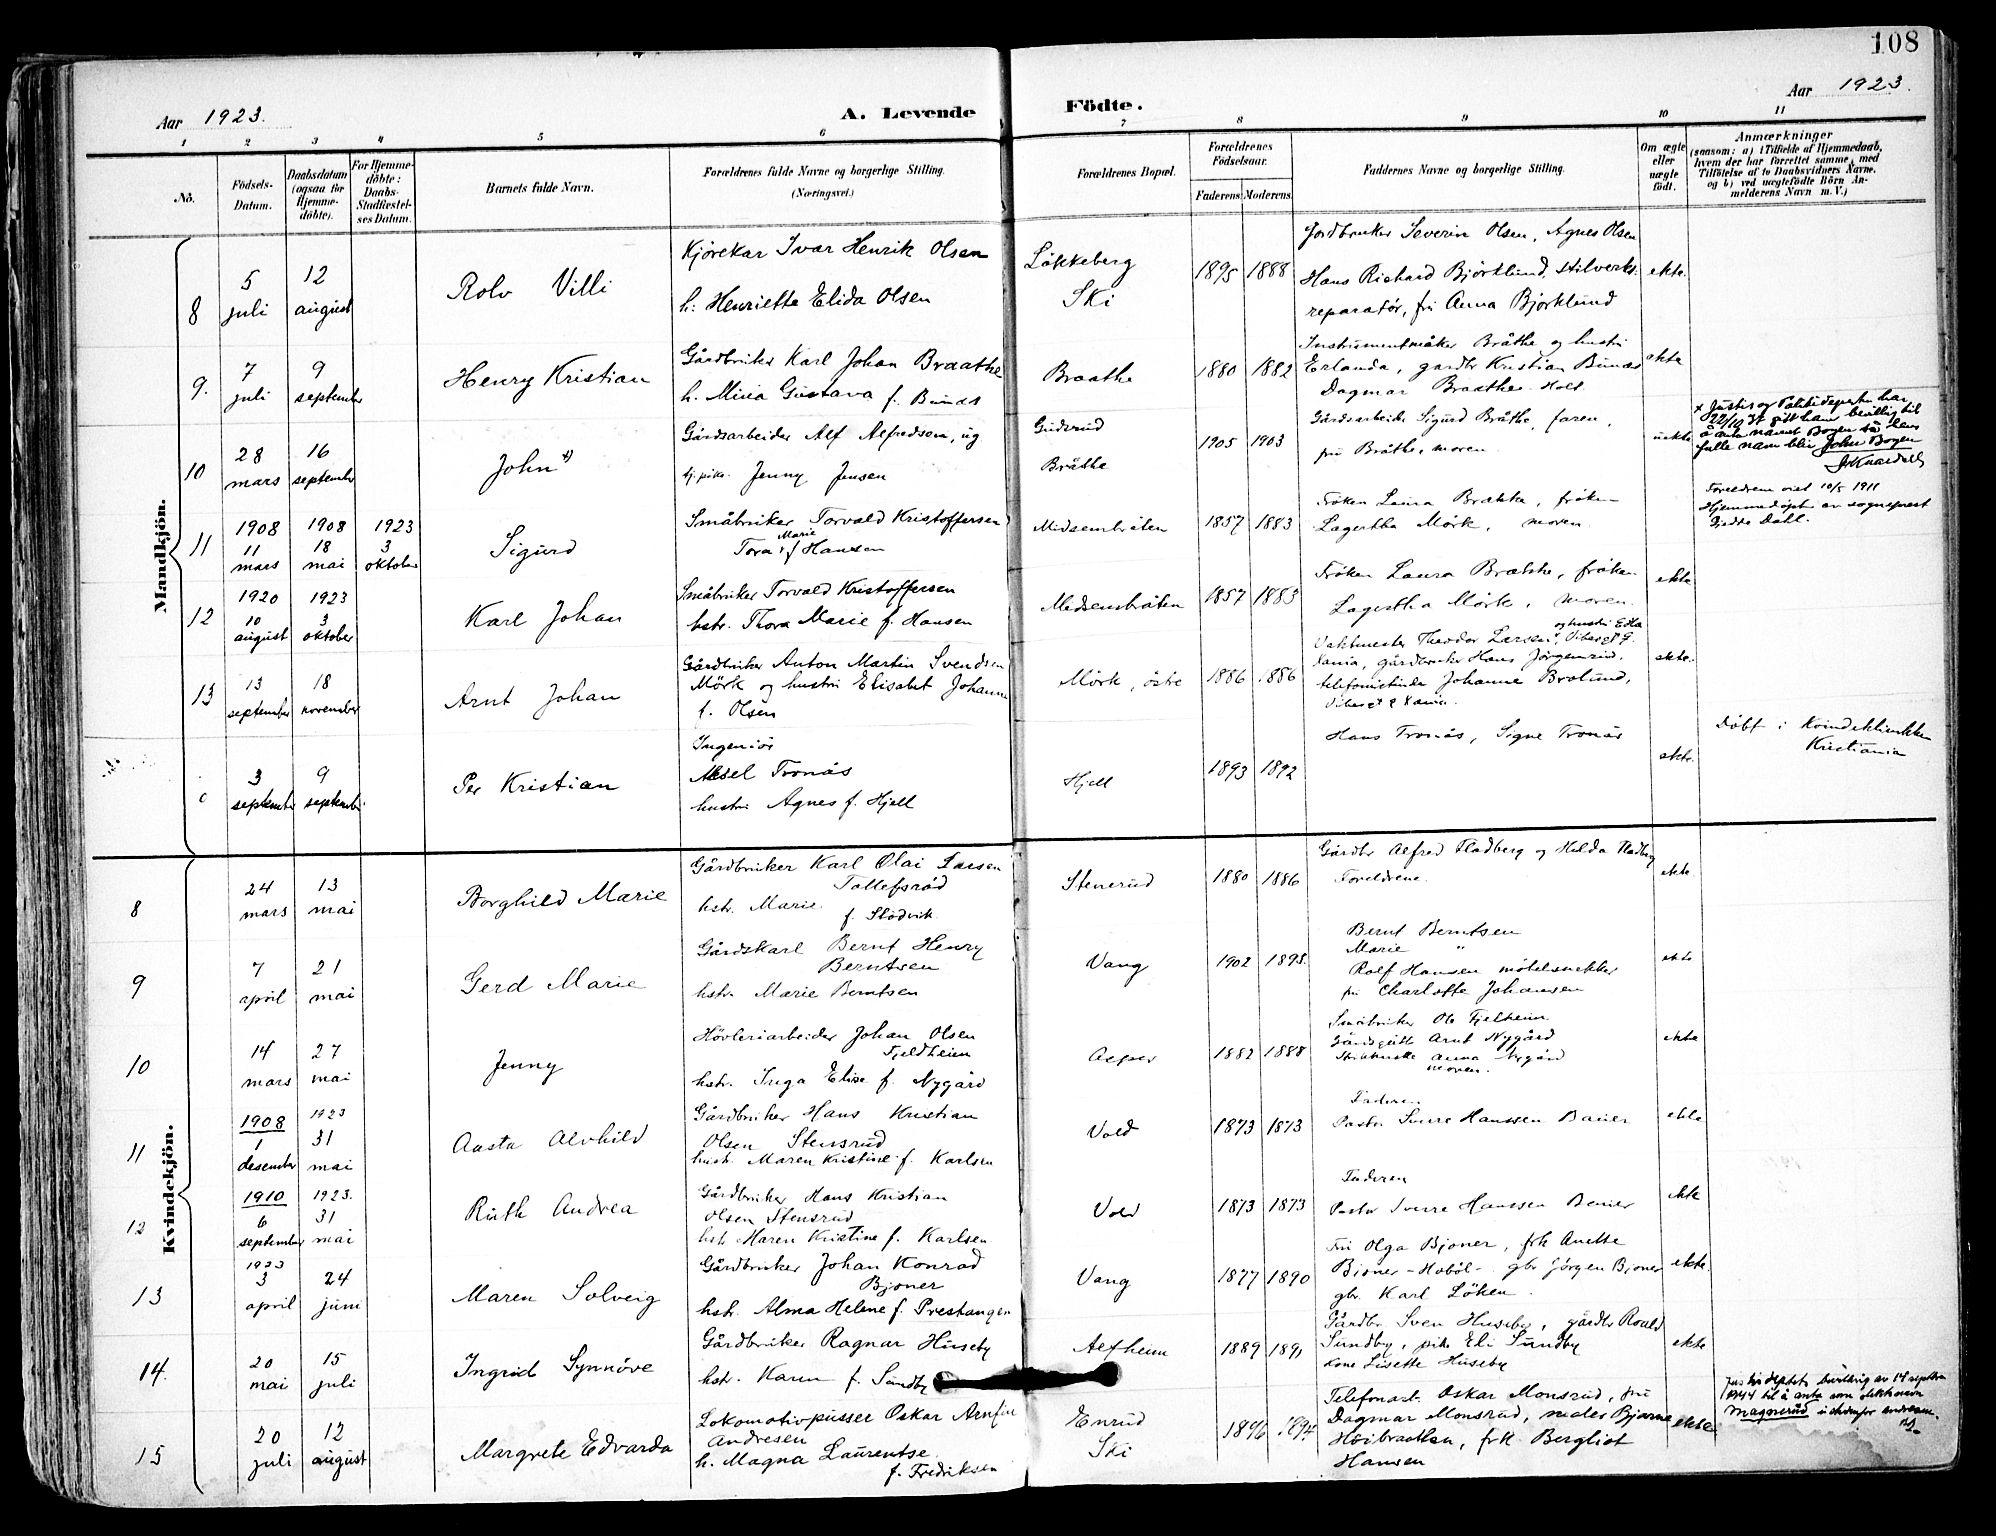 108
Aar 1923.
A. Levende Födte.
Aar 1923.
1 2 3 4 5 6 7 8 9 10 11
No.
Födsels-Datum.
Daabsdatum (ogsaa for Hjemme-döbte).
For Hjemme-döbte: Daabs-Stadfæstel-ses Datum.
Barnets fulde Navn.
Forældrenes fulde Navne og borgerlige Stilling.
(Næringsvei.)
Forældrenes Bopæl.
Forældrenes Födselsaar.
Faderens. Moderens.
Faddernes Navne og borgerlige Stilling.
Om ægte eller uægte födt.
Anmærkninger
(saasom: a) i Tilfælde af Hjemmedaab,
hvem der har forrettet samme, med
Tilföielse af to Daabsvidners Navne.
og b) ved uægtefödte Börn An-
melderens Navn m. V.)
Mandkjön.
8
5 juli
12 august
Rolv Villi
Kjörekar Ivar Henrik Olsen
h: Henriette Elida Olsen
Løkkeberg
Ski
1895 1888
Jordbruker Severin Olsen, Agnes Olsen
Hans Richard Bjørklund, stilverks.
reparatør, fru Anna Bjørklund
ekte.
9.
7 juli
9 september
Henry Kristian
Gårdbruker Karl Johan Braathe
h. Mina Gustava f. Bunes
Braathe
1880 1882
Instrumentmåker Bråthe og hustri
Erlanda, gardbr Kristian Bunæs
Dagmar Braathe Holt
ekte
10
28 mars
16 september
John x)
Gårdsarbeider Alf Alfredsen, ug
tj.pike. Jenny Jensen
Gudsrud
Bråthe
1905 1903
Gårdsarbeider Sigurd Bråthe, faren,
fru Bråthe, moren.
uekte
x Justis og Politidepartm har
22/10 37 gitt ham bevillig til
å anta navnet Bogen så hans
fulle navn blir John Bogen
11
1908 11 mars
1908 18 mai
1923 3 oktober
Sigurd
Småbruker Torvald Kristoffersen
Tora Marie f Hansen
Midsembråten
1857 1883
Frøken Laura Brække, frøken
Lagertha Mörk, moren.
Foreldrene viet 10/5 1911
Hjemmedøpt av sogneprest
Dahl.
12
1920 10 august
1923 3 oktober
Karl Johan
Småbruker Torvald Kristoffersen
hstr. Thora Marie f. Hansen
Midsembråten
1857 1883
Frøken Laura Brække, frøken
Lagertha Mörk, moren.
ekte
13
13 september
18 november
Arnt Johan
Gårdbruker Anton Martin Svendsen
Mörk og hustru Elisabet Johanne
f. Olsen
Mörk, östre
1886 1886
Vaktmester Theodor Larsen og hustri Edla, Vibesgt 9.
Kania, gårdbruker Hans Jörgensrud,
telefonistinde Johanne Brolund,
Vibesgt 9 Kania.
ekte.
3 september
9 september
Per Kristian
Ingeniör
Aksel Tronås
hustri Agnes f. Hjell
Hjell
1893 1892
Hans Tronås, Signe Tronås
ekte.
Döbt i Kvindeklinikken
Kristiania
Kvindekjön.
8
24 mars
13 mai
Borghild Marie
Gårdbruker Karl Olai Larsen
Tollefsröd
hstr. Marie
f. Slödvik
Stenerud
1880 1886
Gårdbr Alfred Fladberg og Hilda Fladberg
Foreldrene.
ekte.
9
7 april
21 mai
Gerd Marie
Gårdskarl Bernt Henry
Berntsen
hstr. Marie Berntsen
Vang
1902 1898.
Bernt Berntsen
Marie "
Rolf Hansen möbelsnekker
fru Charlotte Johansen
ekte
10
14 mars
27 mai
Jenny
Hövleriarbeider Johan Olsen
Fjeldheim
hstr. Inga Elise f. Nygård
Asper
1882 1888
Småbruker Ole Fjelheim
Gårdsgutt Arnt Nygård
Anna Nygård
moren.
ekte
11
1908 1 desember
1923 31 mai
Aasta Alvhild
Gårdbruker Hans Kristian
Olsen Stensrud
hustr. Maren Kristine f. Karlsen
Vold
1873 1873
Faderen
Pastor Sverre Hanssen Bauer
ekte
12
1910 6 september
1923. 31 mai
Ruth Andrea
Gårdbruker Hans Kristian
Olsen Stensrud
hstr. Maren Kristine f. Karlsen
Vold
1873 1873
Faderen
Pastor Sverre Hanssen Bauer
ekte
13
1923 3 april
24 juni
Maren Solveig
Gårdbruker Johan Konrad
Bjoner
hstr. Alma Helene f. Prestangen
Vang
1877 1890
Fru Olga Bjoner, frk Anette
Bjoner - Hobøl - gbr Jörgen Bjoner
gbr. Karl Löken.
ekte.
14.
20 mai
15 juli
Ingrid Synnöve
Gårdbruker Ragnar Huseby
hstr. Karen f. Sundby
Aefheim
1889 1891
Gårdbr. Sven Huseby, gårdbr Roald
Sundby, pike Eli Sundby
kone Lisette Huseby
ekte
15
20 juli
12 august
Margrete Edvarda
Lokomotivpusser Oskar Arnfin
Andresen
h. Magna Laurentse
f. Fredriksen
Enrud
Ski
1896 1894
Telefonarb. Oskar Monsrud, fru
Dagmar Monsrud, Bjarne
Höibraathen, frk. Bergliot
Hansen
ekte.
bevilling av 14 septbr
1944 til å anta som slektsnavn
Magnerud istedenfor Andresen.